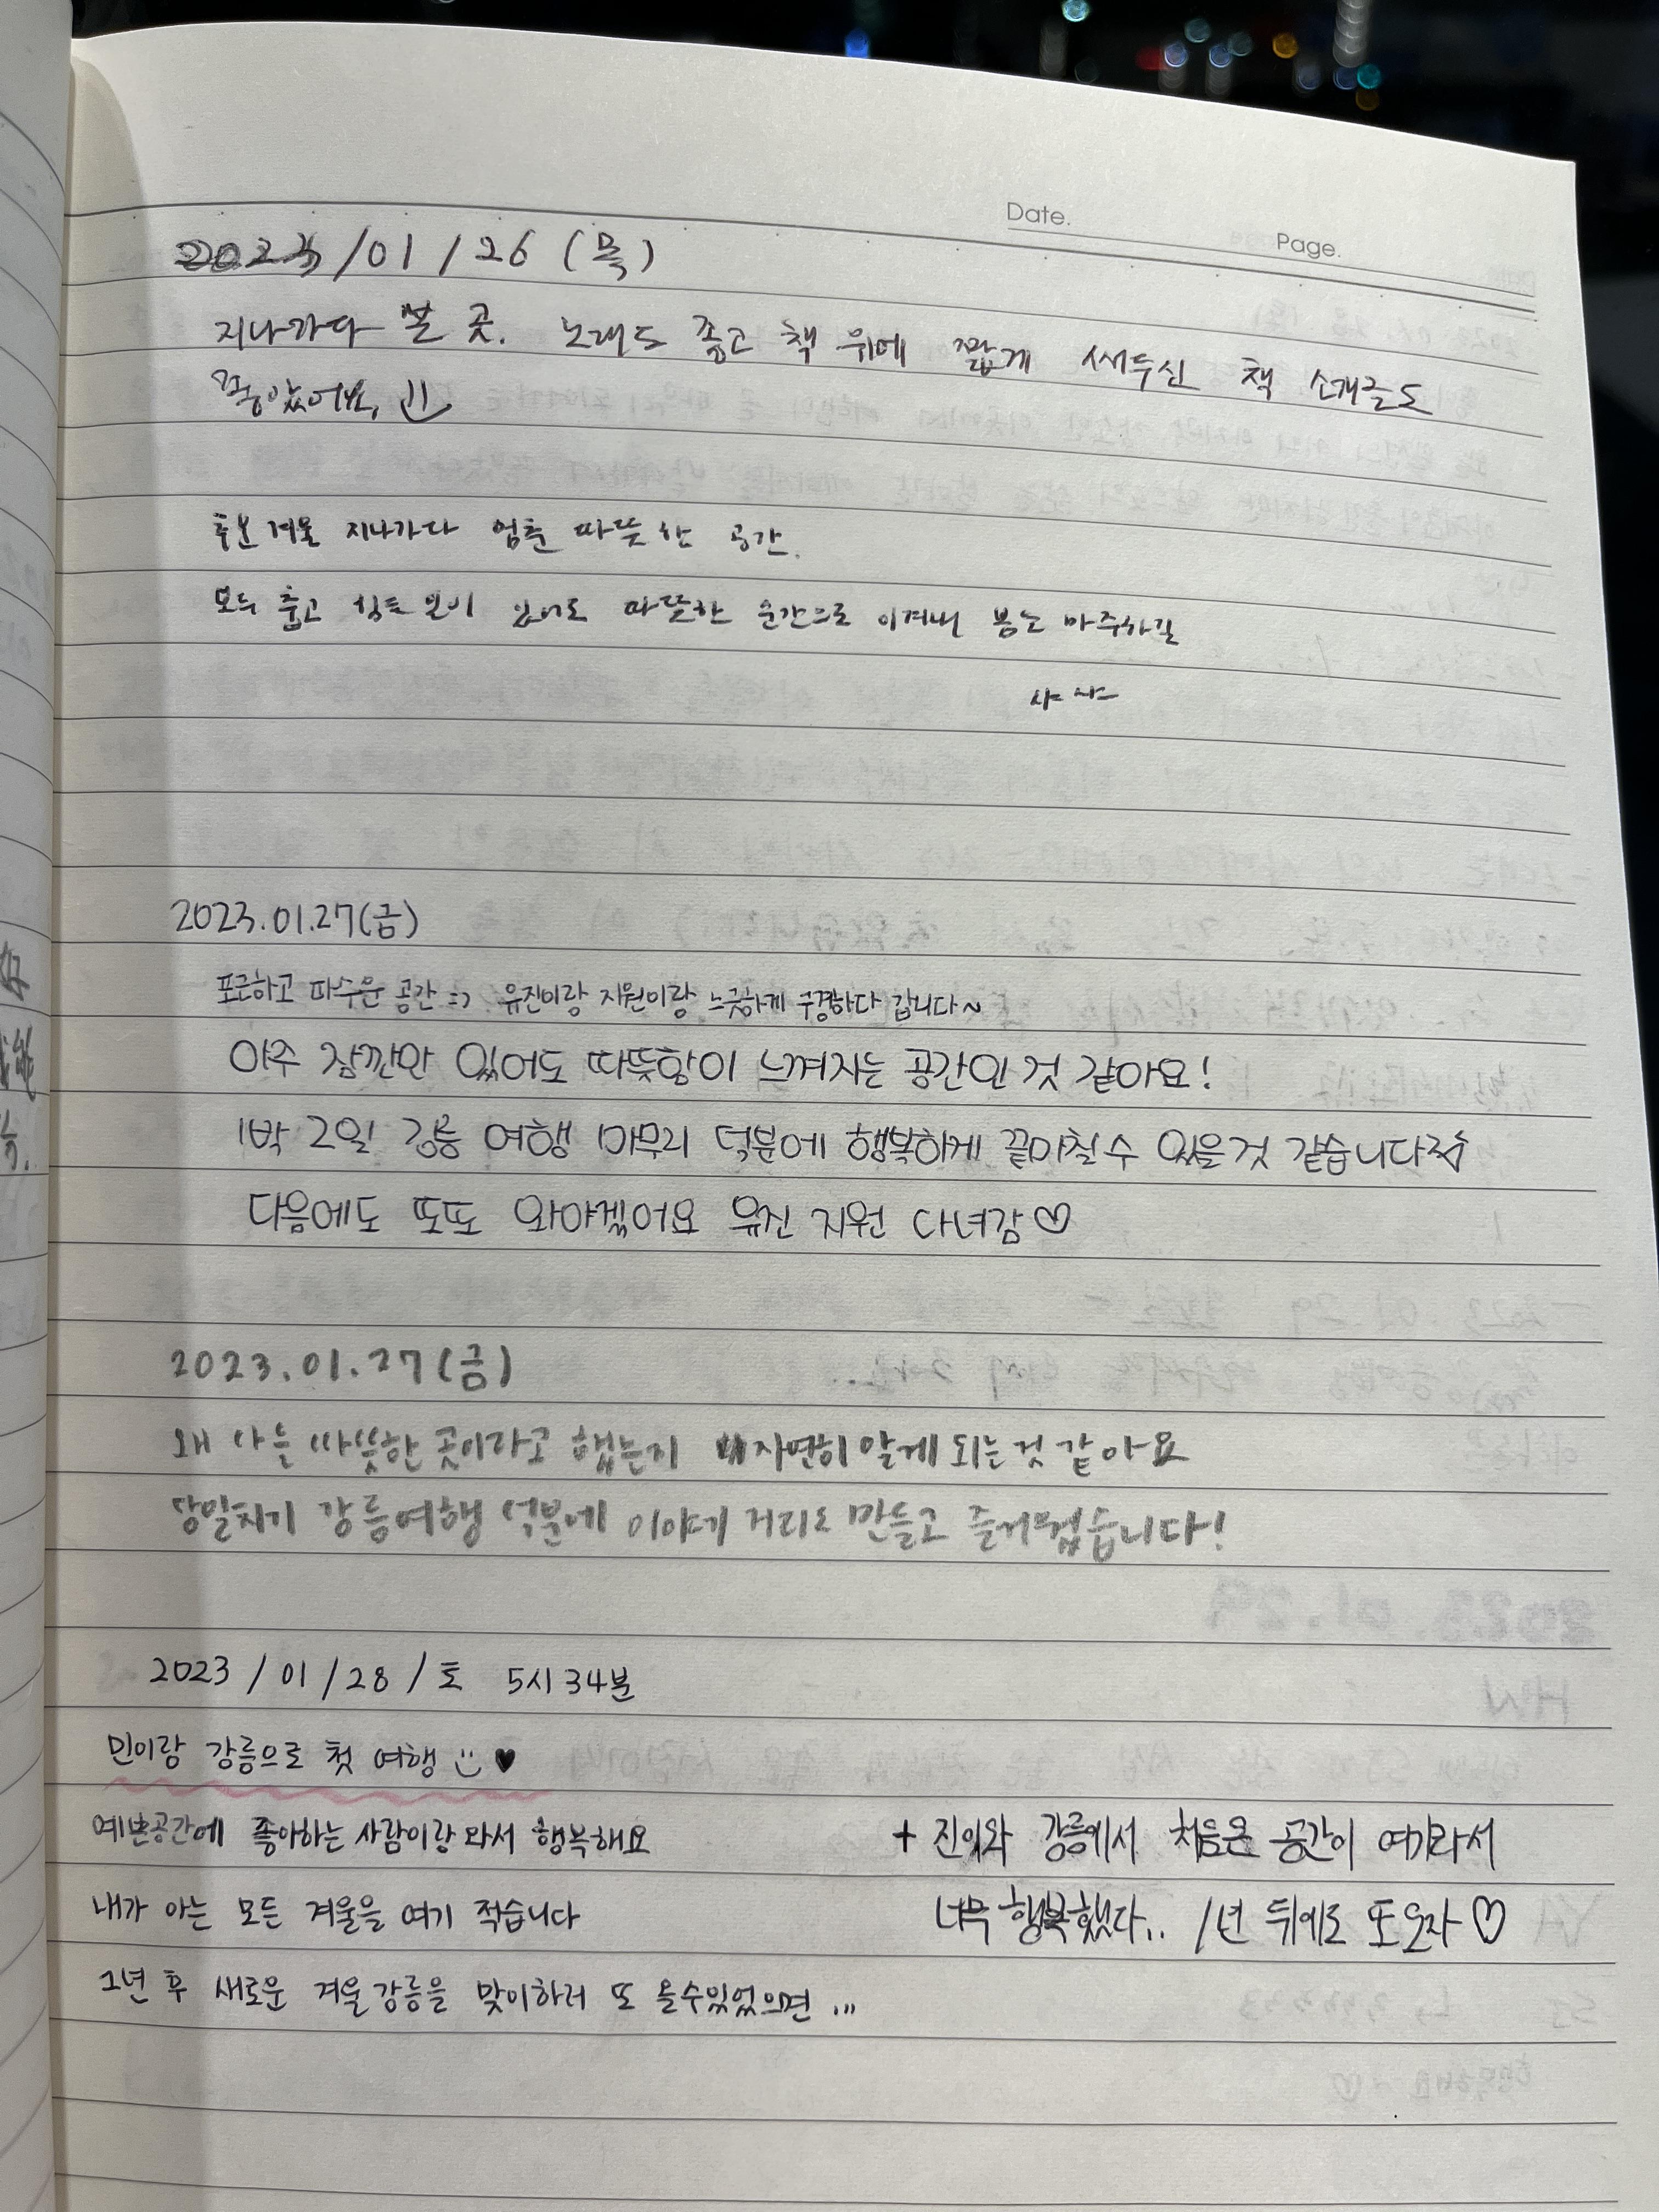 Date.
Page.
2023/01/26 (목)
지나가다 본 곳. 노래도 좋고 책 위에 짧게 써두신 책 소개글도
좋았어요,
추운 겨울 지나가다 멈춘 따뜻한 공간.
모두 춥고 힘든 일이 있어도 따뜻한 순간으로 이겨내 봄을 마주하길
2023.01.27(금)
포근하고 따수운 공간 :-) 유진이랑 지원이랑 느긋하게 구경하다 갑니다~
아주 잠깐만 있어도 따뜻함이 느껴지는 공간인 것 같아요!
1박 2일 강릉 여행 마무리 덕분에 행복하게 끝마칠수 있을것 같습니다
다음에도 또또 와야겠어요 유진 지원 다녀감♡
2023.01.27(금)
왜 다들 따뜻한 곳이라고 했는지 자연히 알게 되는것 같아요
당일치기 강릉여행 덕분에 이야기 거리도 만들고 즐거웠습니다!
2023/01/28/토 5시 34분
민이랑 강릉으로 첫 여행 ♥
예쁜공간에 좋아하는 사람이랑 와서 행복해요
내가 아는 모든 겨울을 여기 적습니다
1년 후 새로운 겨울 강릉을 맞이하러 또 올수있었으면 ...
+ 진이와 강릉에서 처음온 공간이 여기라서
너무 행복했다.. 1년 뒤에도 또 오자♡